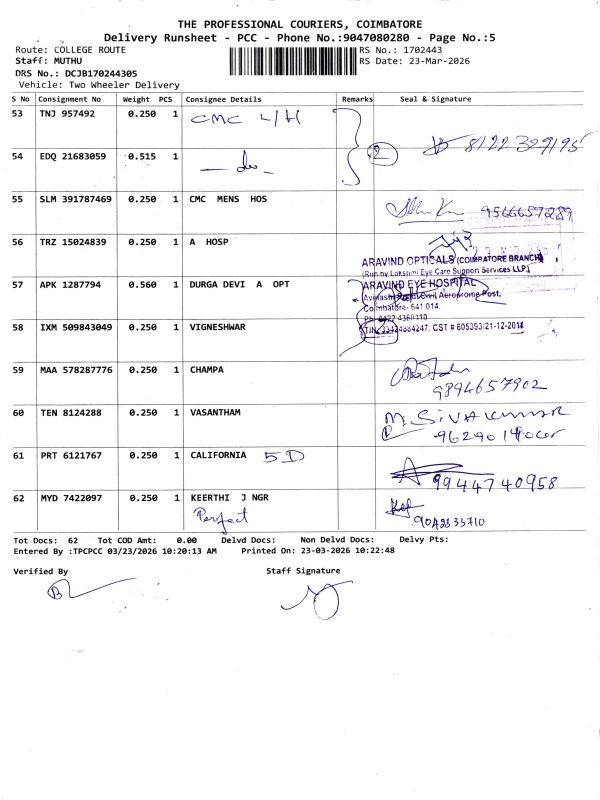 THE PROFESSIONAL COURIERS, COIMBATORE
Delivery Runsheet - PCC - Phone No.:9047080280 - Page No.:5
Route: COLLEGE ROUTE RS No.: 1702443
Staff: MUTHU RS Date: 23-Mar-2026
DRS No.: DCJB170244305
Vehicle: Two Wheeler Delivery
S No Consignment No Weight PCS Consignee Details Remarks Seal & Signature
53 TNJ 957492 0.250 1 CMC L/H
54 EDQ 21683059 0.515 1 —do— 2 8122329195
55 SLM 391787469 0.250 1 CMC MENS HOS 9566657289
56 TRZ 15024839 0.250 1 A HOSP
ARAVIND OPTICALS (COIMBATORE BRANCH)
(Run by Lakshmi Eye Care Support Services LLP.)
57 APK 1287794 0.560 1 DURGA DEVI A OPT ARAVIND EYE HOSPITAL
Avinashi Road, Civil Aerodrome Post,
Coimbatore- 641 014.
Ph: 0422-4360410
58 IXM 509843049 0.250 1 VIGNESHWAR TIN 33424884247. CST # 805393/21-12-2011
59 MAA 578287776 0.250 1 CHAMPA 9894657902
60 TEN 8124288 0.250 1 VASANTHAM M. SIVAKUMAR
61 PRT 6121767 0.250 1 CALIFORNIA 5D 9944740958
62 MYD 7422097 0.250 1 KEERTHI J NGR
Perfect
Tot Docs: 62 Tot COD Amt: 0.00 Delvd Docs: Non Delvd Docs: Delvy Pts:
Entered By :TPCPCC 03/23/2026 10:20:13 AM Printed On: 23-03-2026 10:22:48
Verified By Staff Signature